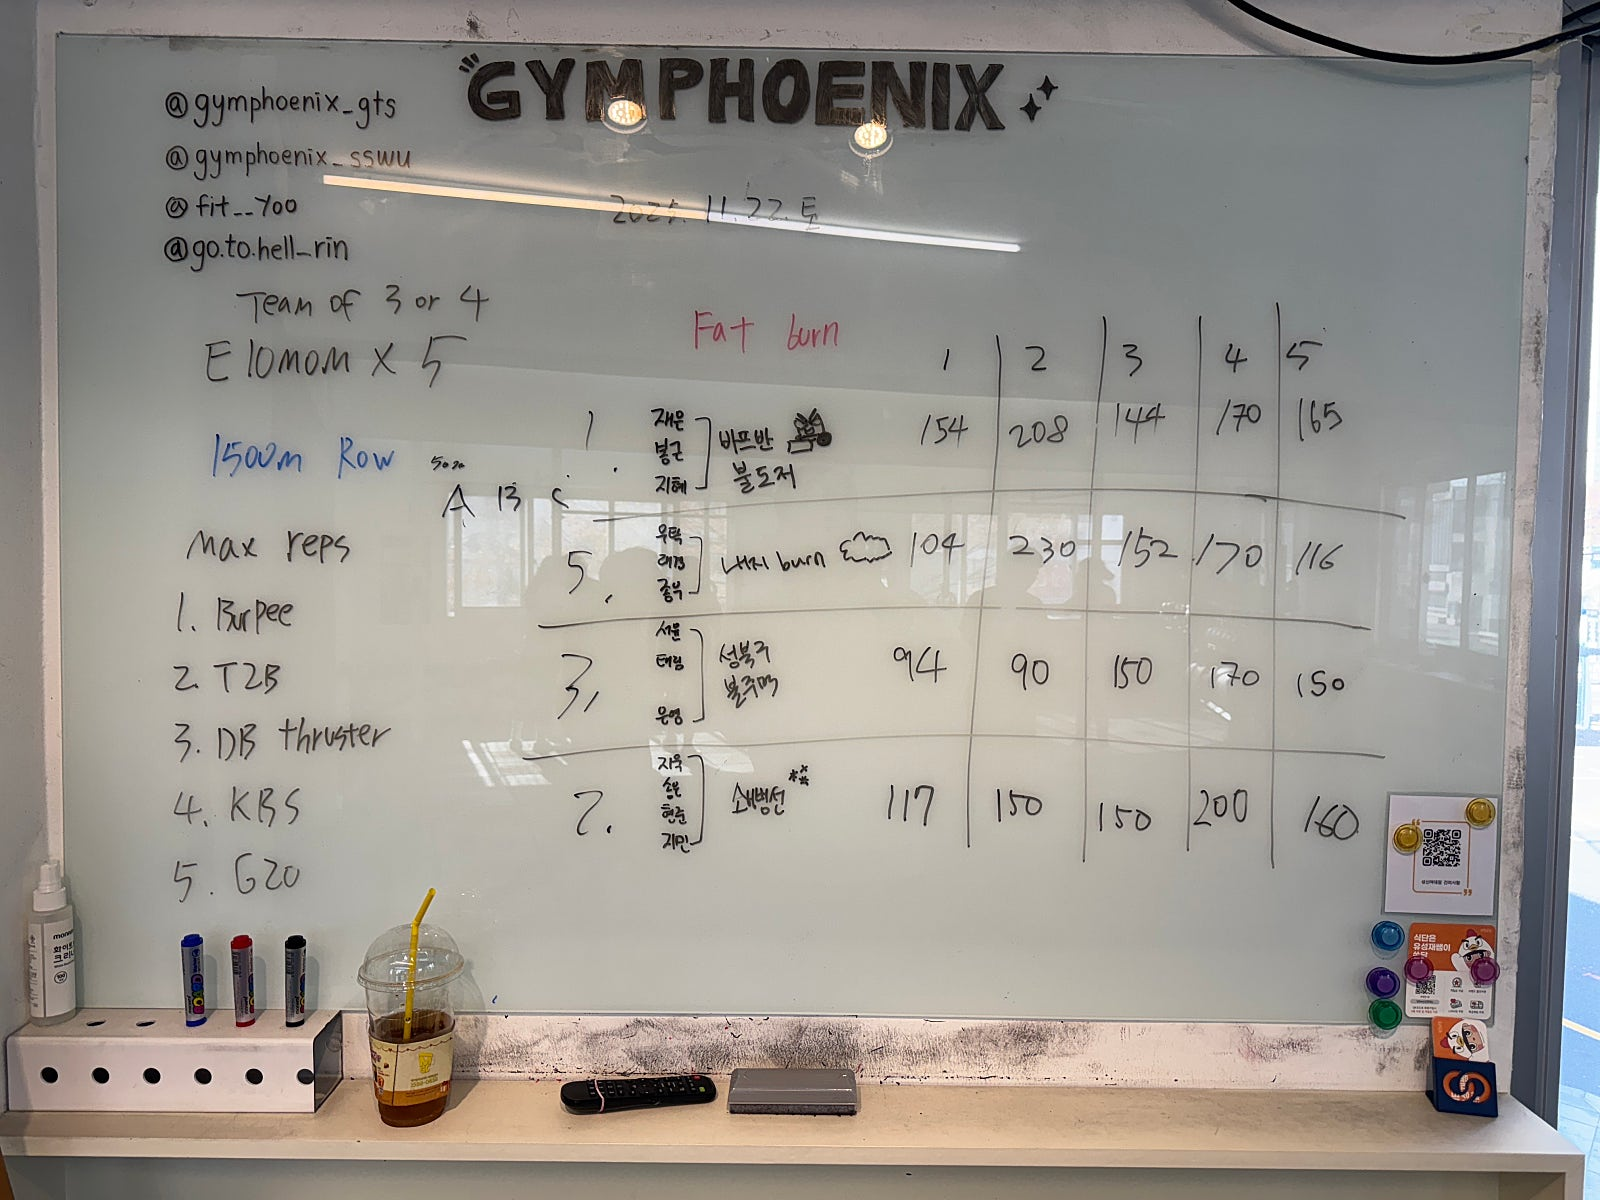 GYMPHOENIX
@gymphoenix_gts
@gymphoenix_sswu
@fit__yoo
@go.to.hell_rin
2025. 11. 22. 토
Team of 3 or 4
E 10MOM X 5
Fat burn
1500m Row
A B C
Max reps
1. Burpee
2. T2B
3. DB thruster
4. KBS
5. G20
1 2 3 4 5
1. 재은 봉근 지혜 바프반 불도저 154 208 144 170 165
5. 우탁 종우 내지 burn 104 230 152 170 116
3. 서윤 태림 은영 성북구 불주먹 94 90 150 170 150
2. 지욱 현준 지민 쇄빙선 117 150 150 200 160
화이트
크리너
식단은
유성재쌤이